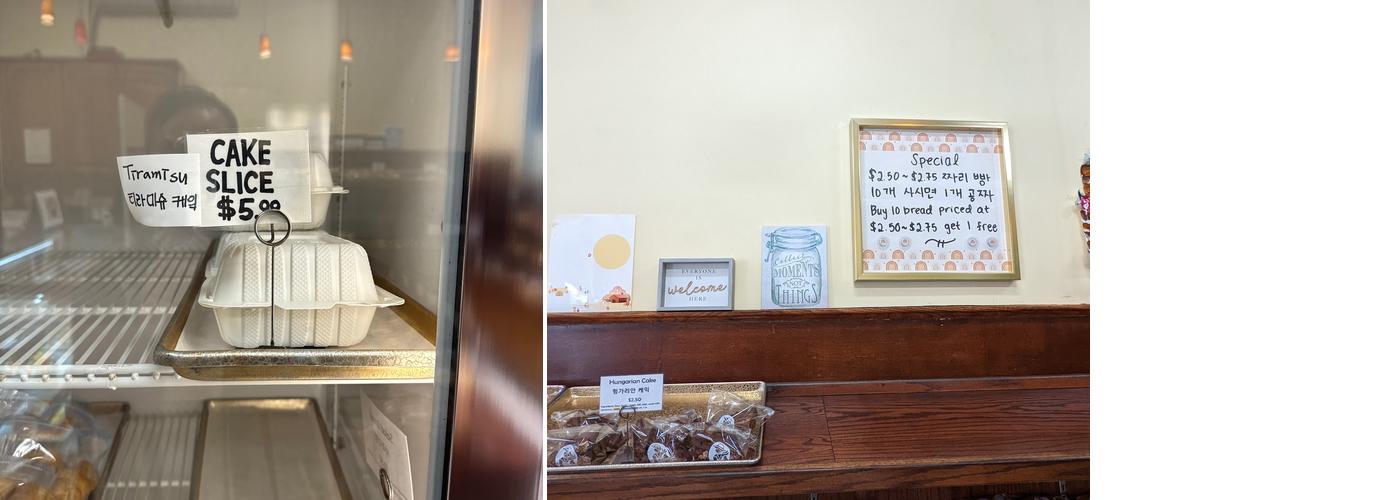 Tiramisu
티라미슈 케잌
CAKE
SLICE
$5.99
EVERYONE
IS
welcome
HERE
Collect
MOMENTS
NOT
THINGS
Special
$2.50~$2.75 짜리 빵
10개 사시면 1개 공짜
Buy 10 bread priced at
$2.50~$2.75 get 1 free
Hungarian Cake
헝가리안 케익
$2.50